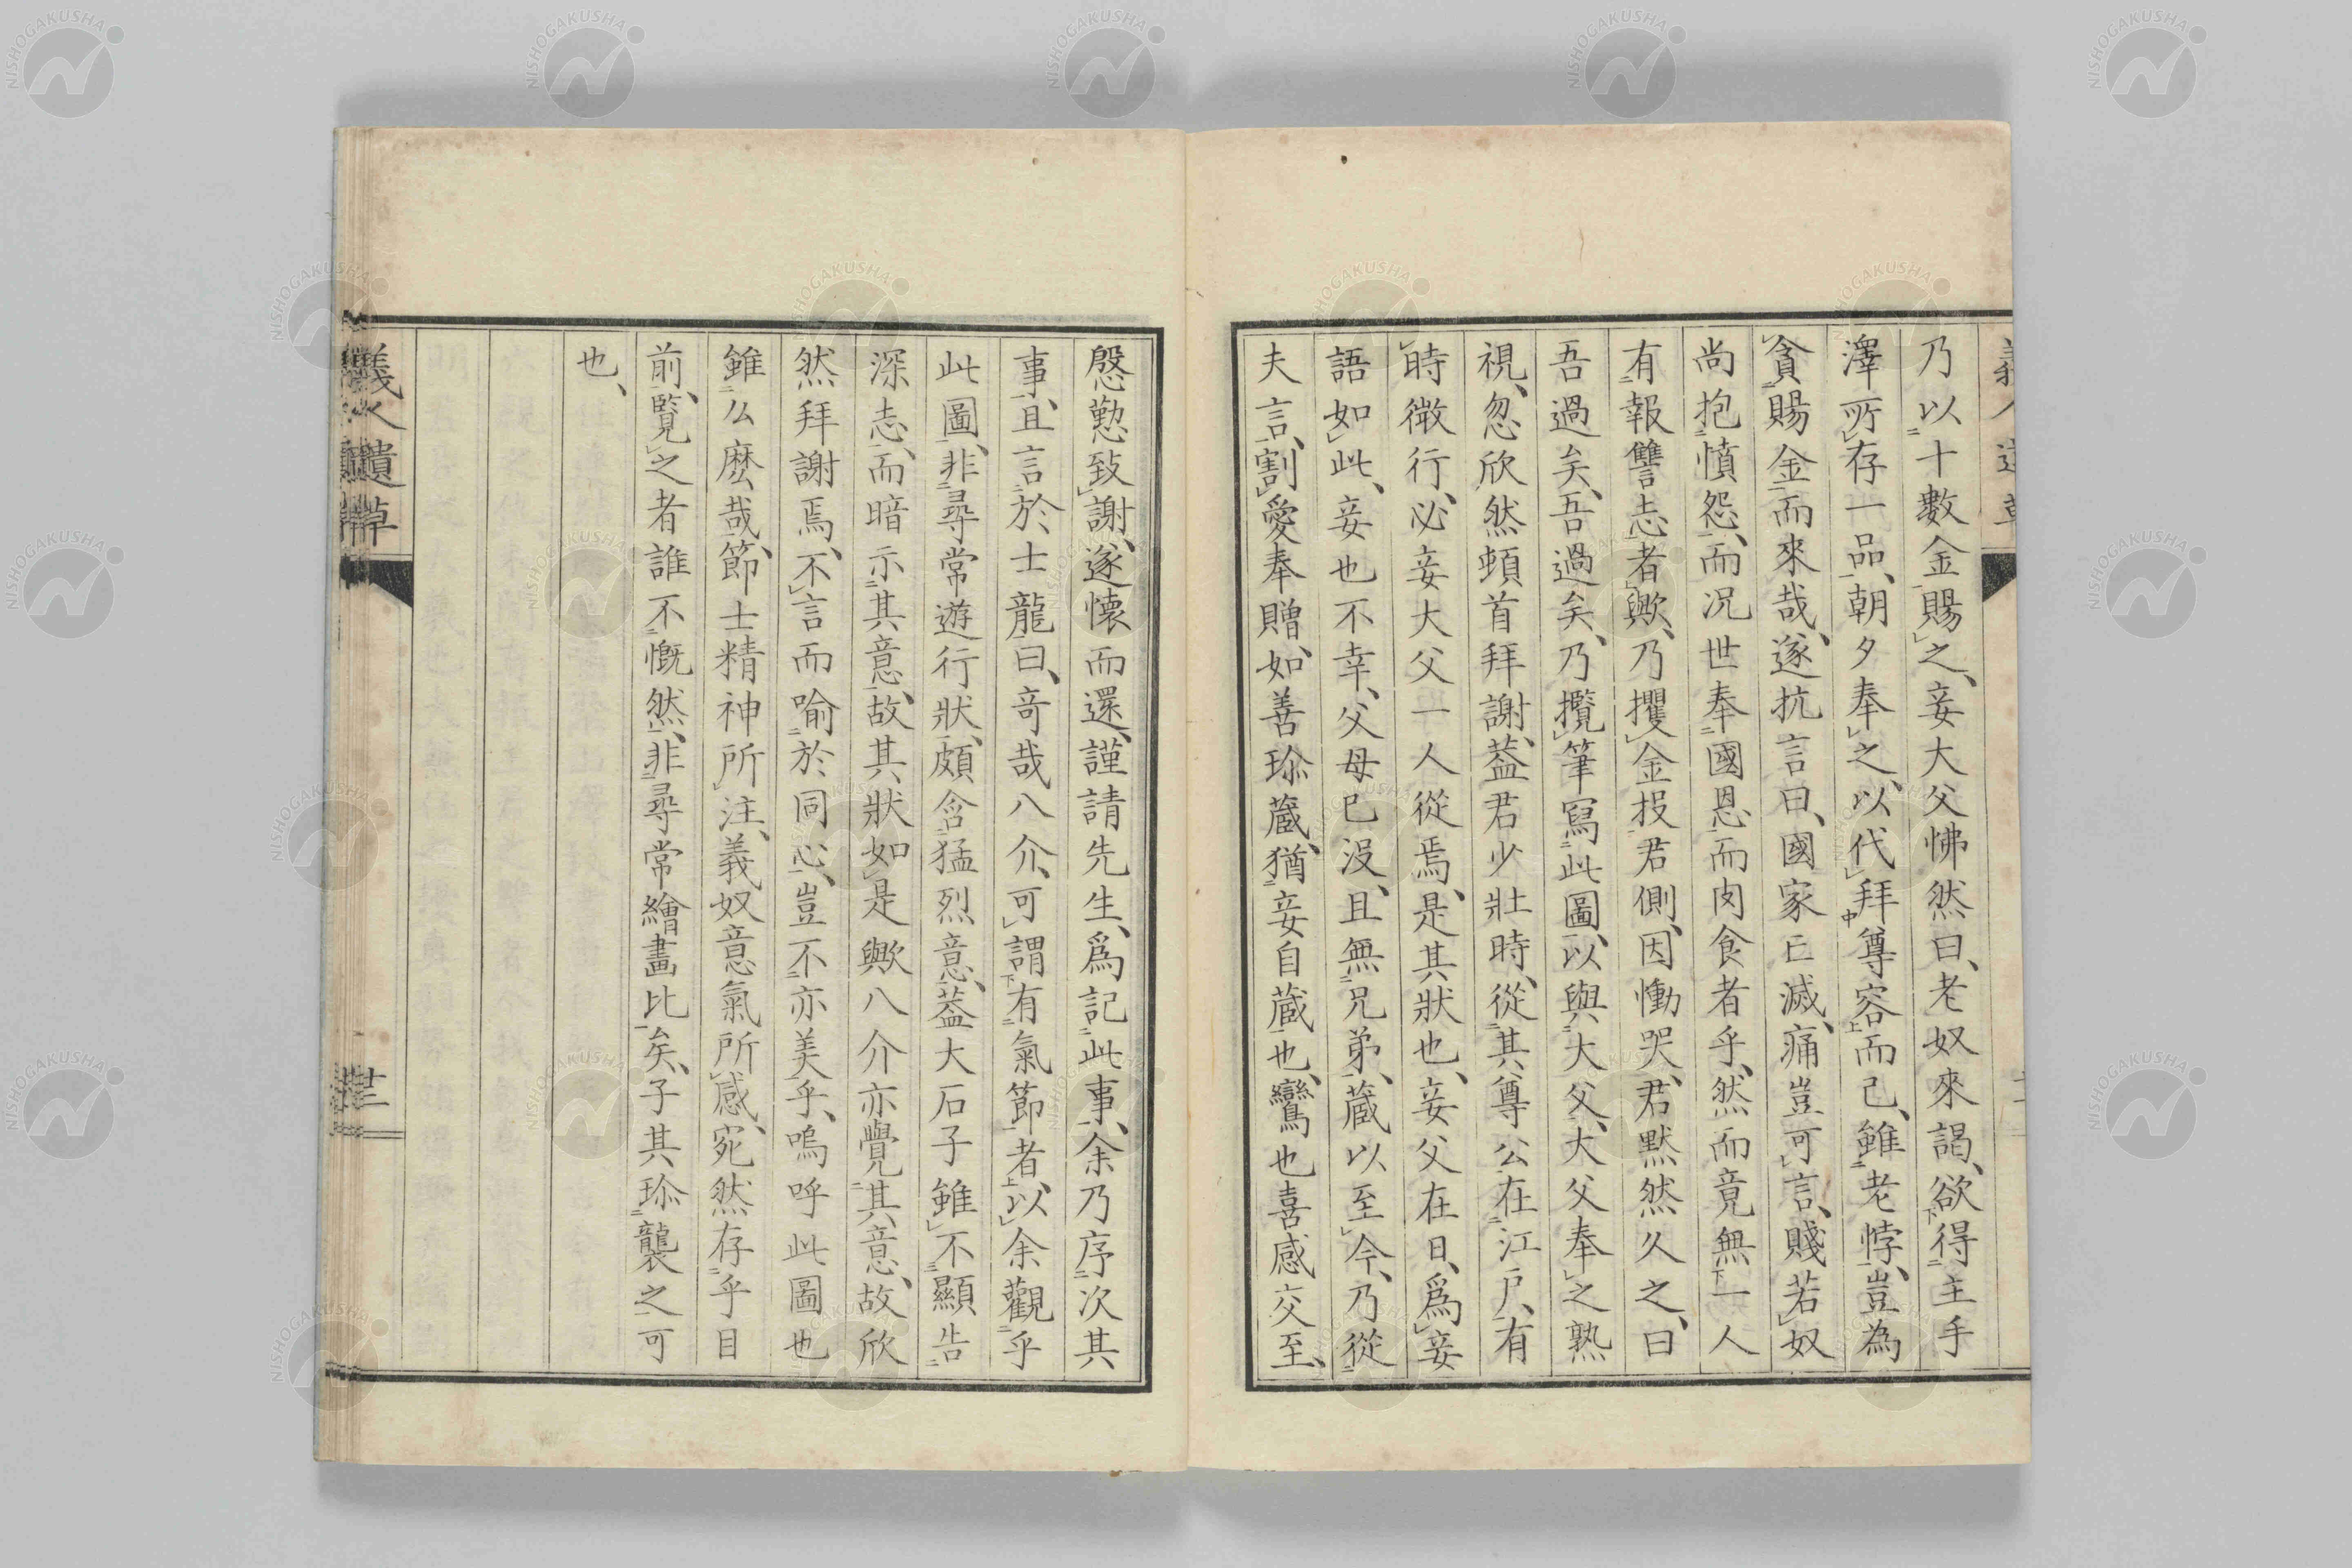 乃以十數金賜之、妾大父怫然曰、老奴來謁、欲得主手
澤所存一品、朝夕奉之、以代拜尊容而已、雖老悖、豈為
貪賜金而來哉、遂抗言曰、國家亡滅、痛豈可言、賤若奴
尚抱憤怨、而況世奉國恩而肉食者乎、然而竟無一人
有報讐志者歟、乃攫金投君側、因慟哭、君默然久之、曰
吾過矣、吾過矣、乃攬筆寫此圖、以與大父、大父奉之熟
視、忽欣然頓首拜謝、蓋君少壯時、從其尊公在江戶、有
時微行、必妾大父一人從焉、是其狀也、妾父在日、爲妾
語如此、妾也不幸、父母已没、且無兄弟、蔵以至今、乃從
夫言、割愛奉贈、如善珎蔵、猶妾自蔵也、鸞也喜感交至、
慇懃致謝、遂懷而還、謹請先生、爲記此事、余乃序次其
事、且言於士龍曰、奇哉八介、可謂有氣節者、以余觀乎
此圖、非尋常遊行狀、頗含猛烈意、蓋大石子雖不顯告
深志、而暗示其意、故其狀如是歟、八介亦覺其意、故欣
然拜謝焉、不言而喻於同心、豈不亦美乎、嗚呼此圖也
雖么麽哉、節士精神所注、義奴意氣所感、宛然存乎目
前、覽之者誰不慨然、非尋常繪畫比矣、子其珎襲之可
也、
義人遺草